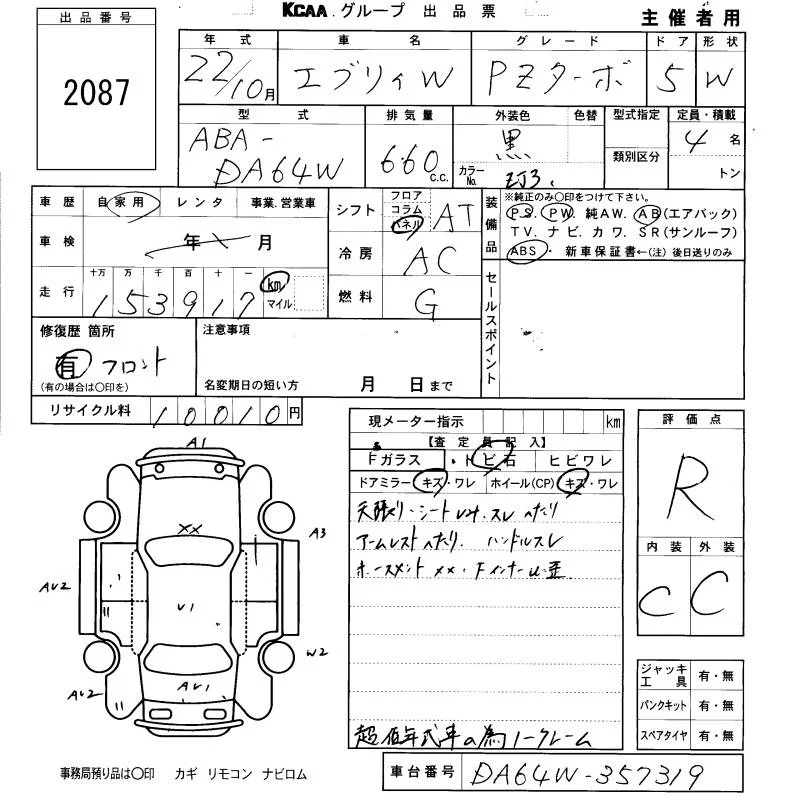 KCAA グループ 出品票
主催者用
出品番号
2087
年式 車名 グレード ドア 形状
22/10月 エブリィW PZターボ 5 W
型式 排気量 外装色 色替 型式指定 定員・積載
ABA-DA64W 660c.c. 黒 カラーNo. ZJ3. 類別区分 4名
トン
車歴 自家用 レンタ 事業.営業車
車検 年 月
走行 十万 万 千 百 十 一
153917 km マイル
シフト フロア コラム パネル AT
冷房 AC
燃料 G
装備品 ※純正のみ○印をつけて下さい。
PS. PW. 純AW. AB(エアバッグ)
TV. ナビ. カワ. SR(サンルーフ)
ABS・ 新車保証書←(注) 後日送りのみ
セールスポイント
修復歴 箇所
有 フロント
(有の場合は○印を)
注意事項
名変期日の短い方 月 日まで
リサイクル料 10010円
現メーター指示 km
【査定員記入】
Fガラス ・トビ石 ヒビワレ
ドアミラー キズ・ワレ ホイール(CP) キズ・ワレ
天張り・シートしみ.スレ へたり
アームレストへたり. ハンドルスレ
ホースメント ××・Fインナーu歪
超低年式車の為ノークレーム
評価点
R
内装 外装
C C
ジャッキ工具 有・無
パンクキット 有・無
スペアタイヤ 有・無
A1
××
A3
AU2
U1
W2
AU2
AU1
事務局預り品は○印 カギ リモコン ナビロム
車台番号 DA64W-357319